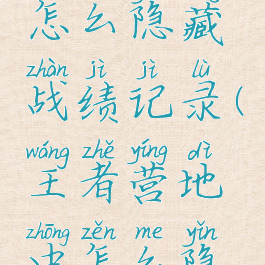 怎么隐藏
zhàn jì jì lù
战绩记录(
wáng zhě yíng dì
王者营地
zhōng zěn me yǐn
中怎么隐